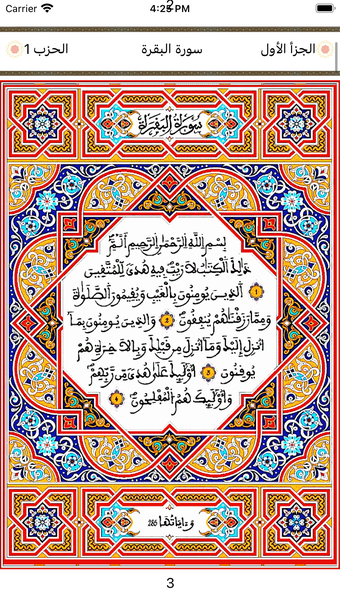 Carrier 4:25 PM
الجزأ الأول سورة البقرة الحزب 1
سورة البقرة
بسم الله الرحمن الرحيم ألم
ذلك الكتاب لا ريب فيه هدى للمتقين
1 الذين يومنون بالغيب ويقيمون الصلوة
ومما رزقناهم ينفقون 2 والذين يومنون بما
أنزل إليك وما أنزل من قبلك وبالاخرة هم
يوقنون 3 أوليك على هدى من ربهم
وأوليك هم المفلحون 4
وءاياتها 286
3